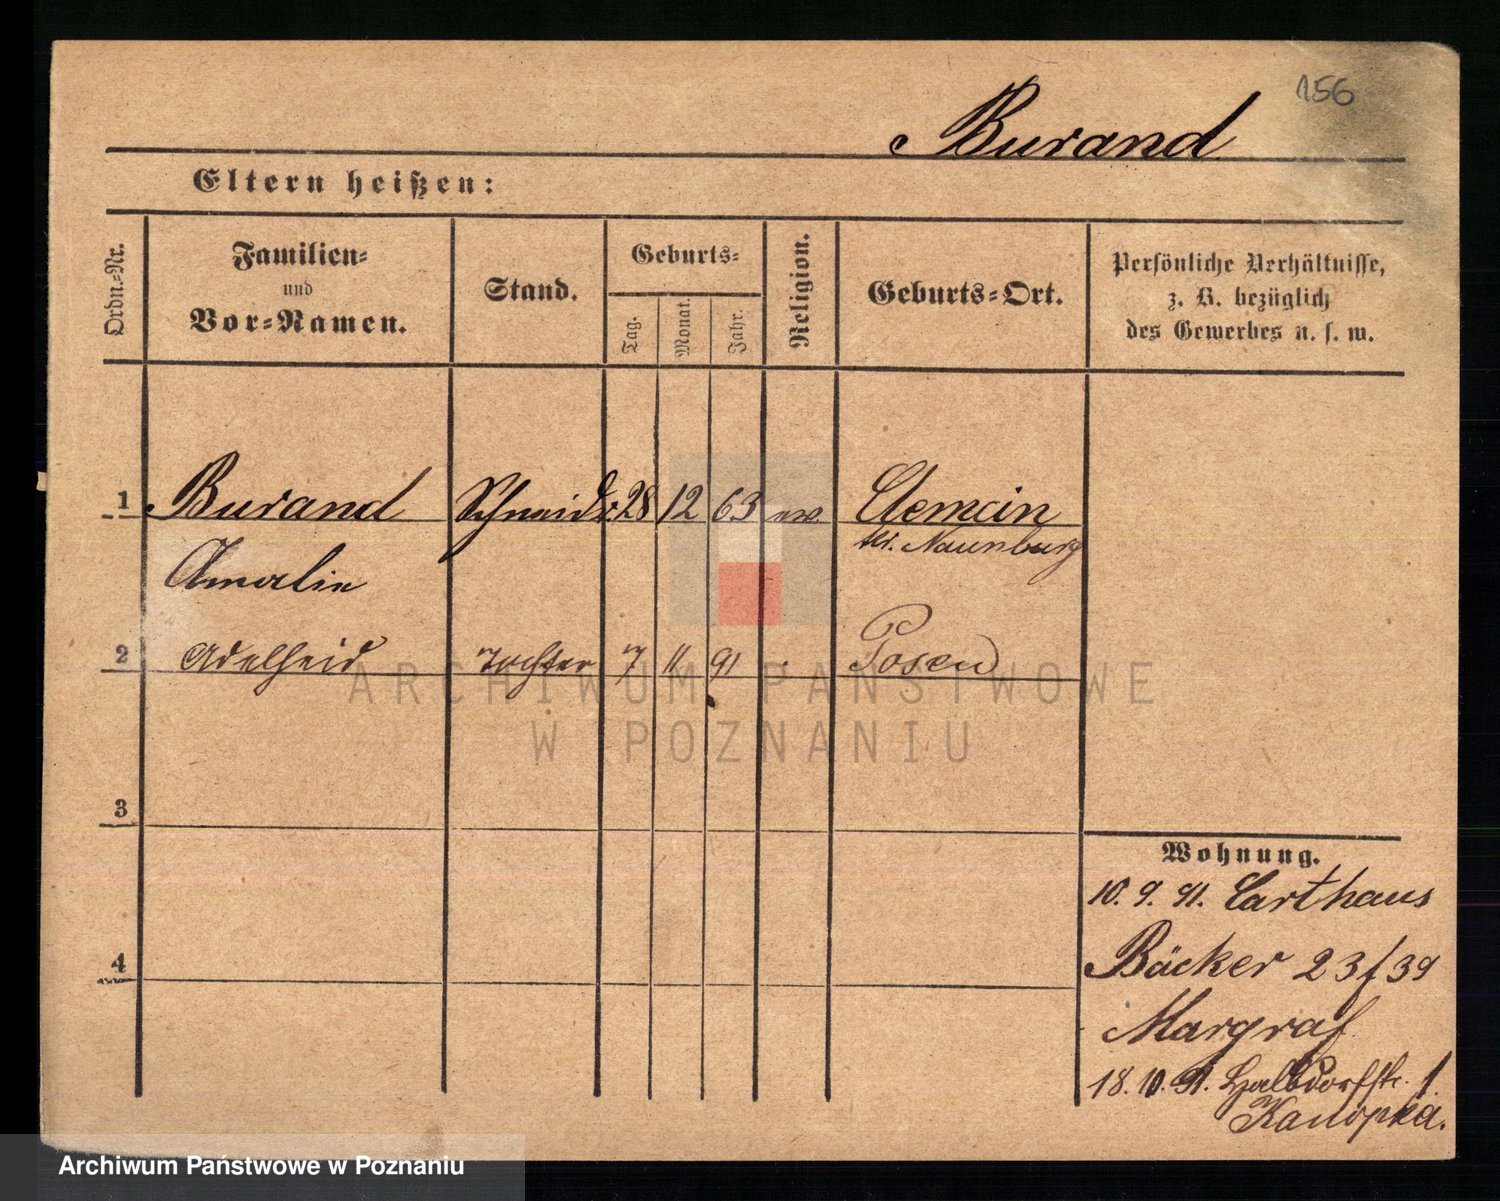 156
Burand
Eltern heißen:
Ordn.-Nr.
Familien-
und
Vor-Namen.
Stand.
Geburts-
Tag.
Monat.
Jahr.
Religion.
Geburts-Ort.
Persönliche Verhältnisse,
z. B. bezüglich
des Gewerbes u. s. w.
1 Burand Schneidr. 28 12 63 ev. Clemcin
Kr. Naumburg
Amalie
2 Adelheid Tochter 7 11 91 Posen
3
4
Wohnung.
10. 9. 91. Carthaus
Bäcker 23/39
Margraf
18. 10. 91. Halbdorfstr. 1.
Kanopka.
ARCHIWUM PAŃSTWOWE
W POZNANIU
Archiwum Państwowe w Poznaniu